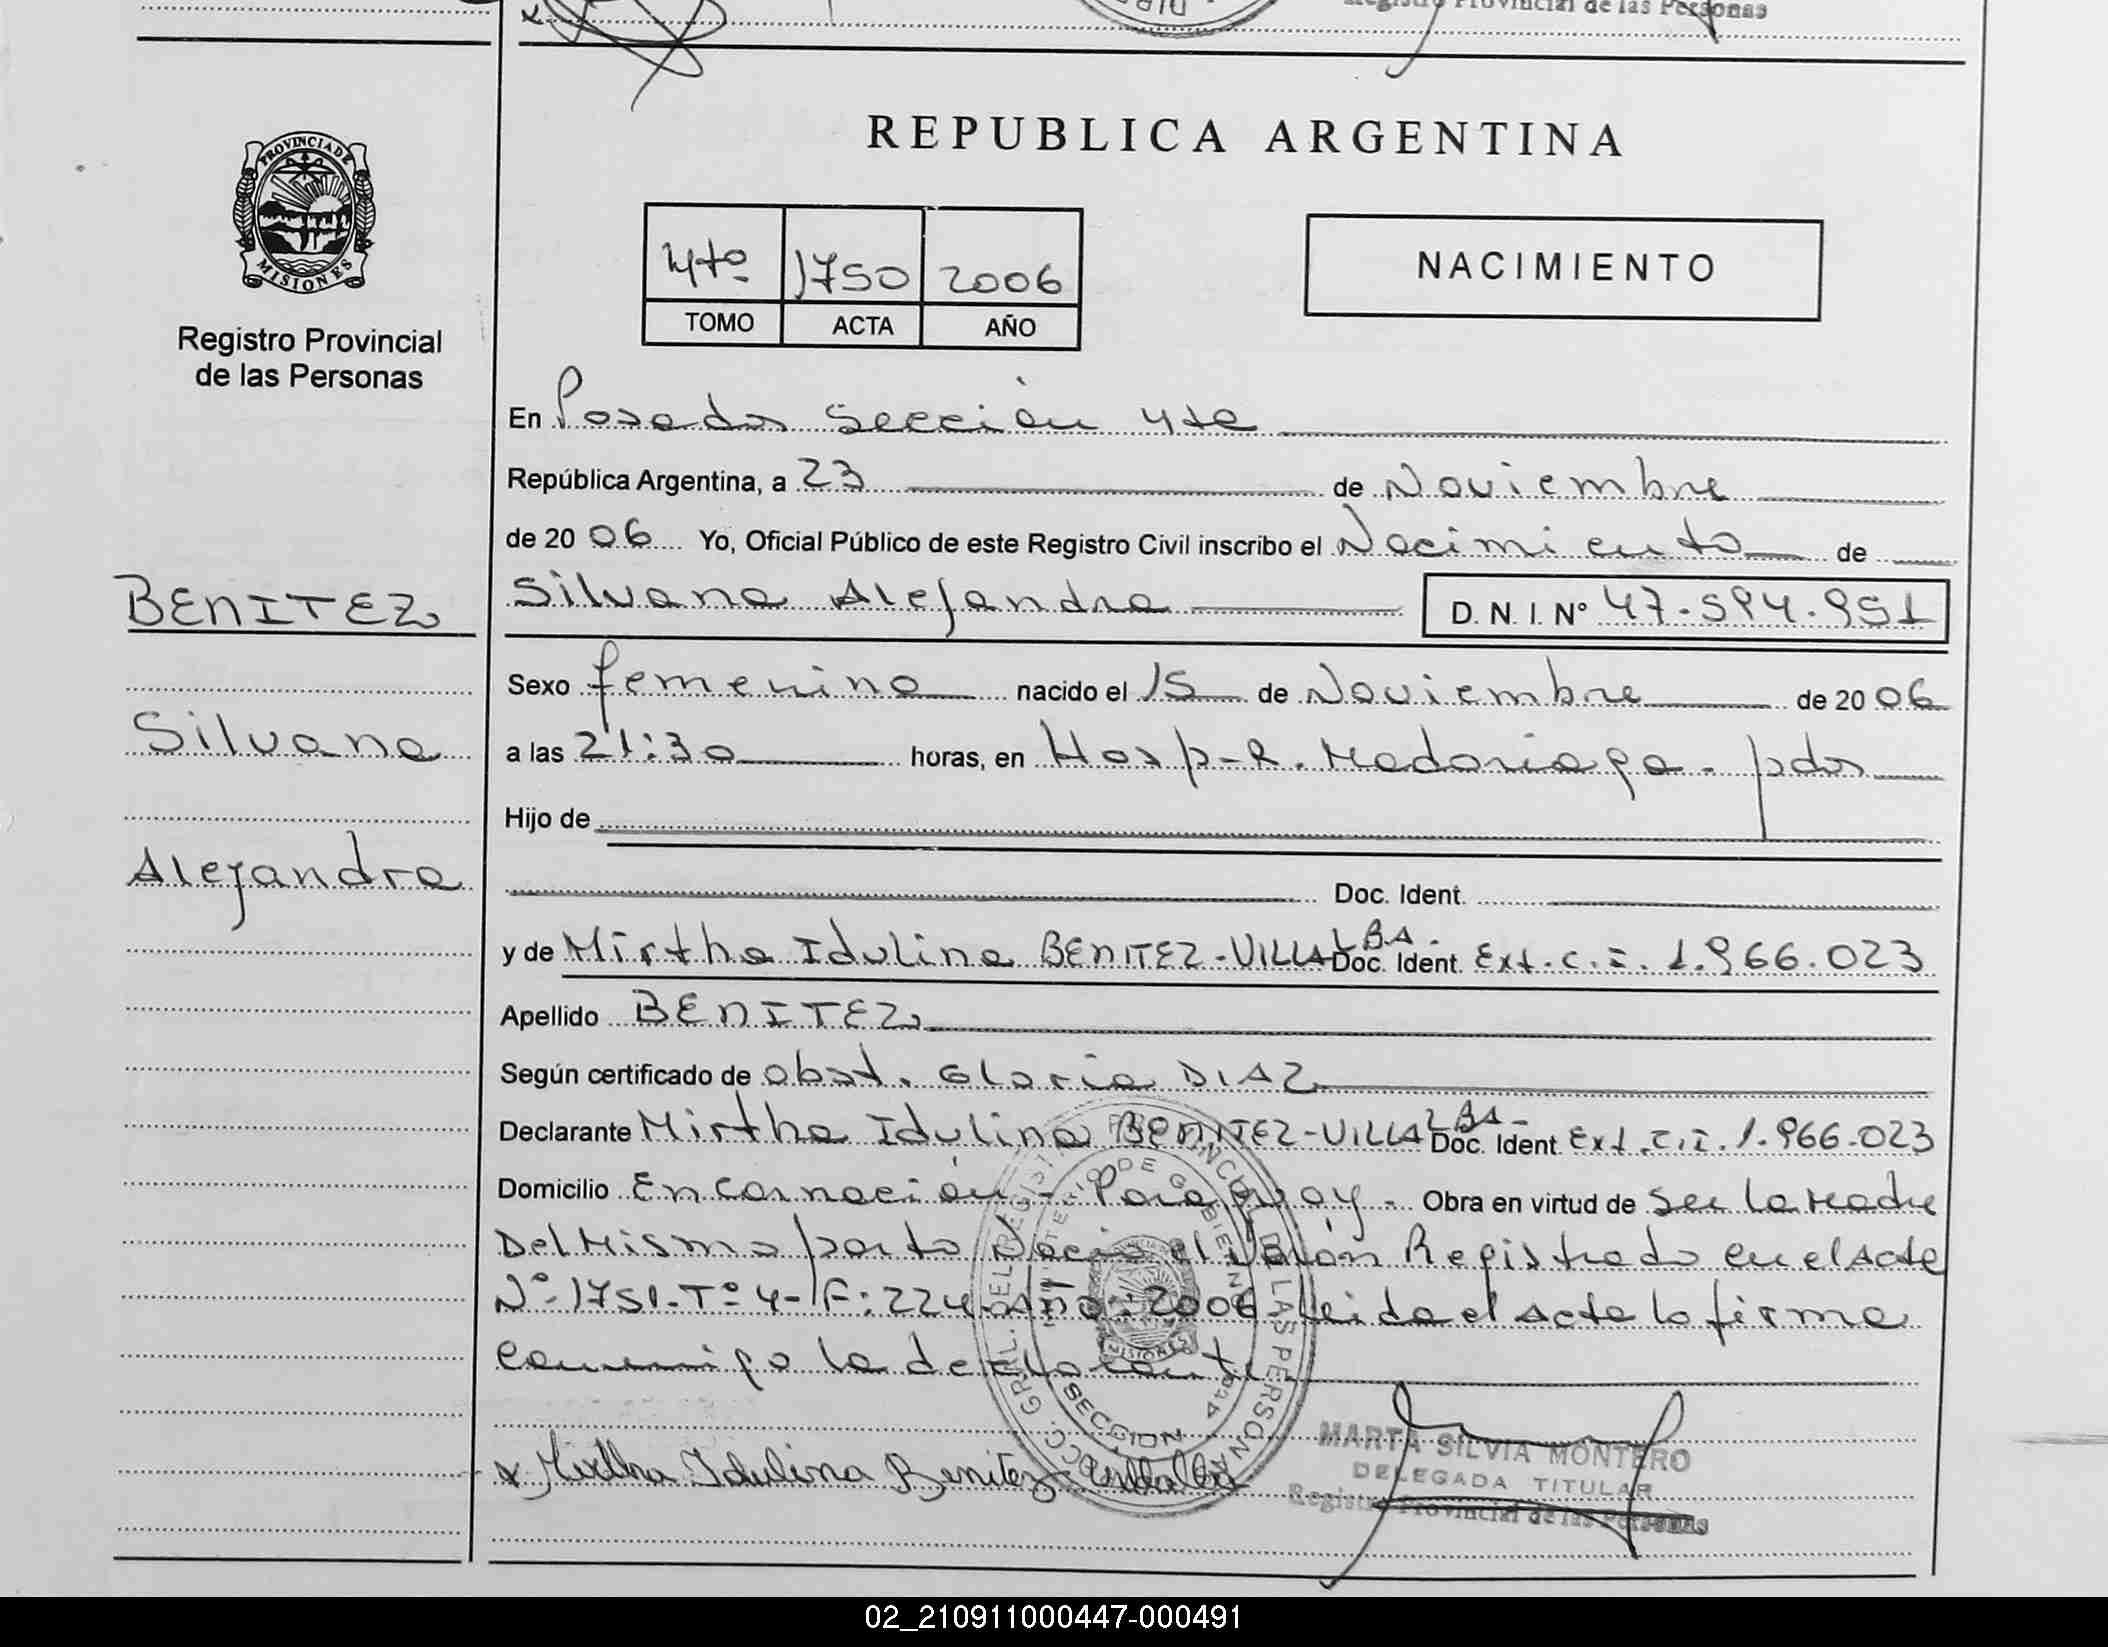 Registro Provincial de las Personas
PROVINCIA DE
MISIONES
Registro Provincial
de las Personas
REPUBLICA ARGENTINA
4to 1750 2006
TOMO ACTA AÑO
NACIMIENTO
En Posadas Sección 4ta
República Argentina, a 23 de Noviembre
de 2006 Yo, Oficial Público de este Registro Civil inscribo el Nacimiento de
BENITEZ
Silvana Alejandra D. N. I. Nº 47.594.951
Sexo femenino nacido el 15 de Noviembre de 2006
Silvana
a las 21:30 horas, en Hosp-R. Madariaga - pdas
Hijo de
Alejandra
Doc. Ident.
y de Mirtha Idulina BENITEZ-VILLALBA- Doc. Ident. Ext. C.I. 1.966.023
Apellido BENITEZ
Según certificado de Obst. Gloria DIAZ
Declarante Mirtha Idulina BENITEZ-VILLALBA- Doc. Ident. Ext. C.I. 1.966.023
Domicilio Encarnación - Paraguay - Obra en virtud de ser la Madre
Del Mismo parto Nació el Varón Registrado en el Acta
Nº 1751-Tº 4-Fº: 224-Año: 2006-Leida el Acta la firma
conmigo la declarante
x Mirtha Idulina Benitez Villalba
DIREC. GRAL. DEL REGISTRO PROVINCIAL DE LAS PERSONAS
MINISTERIO DE GOBIERNO
MISIONES
SECCION 4ta
MARTA SILVIA MONTERO
DELEGADA TITULAR
Registro Provincial de las Personas
02_210911000447-000491